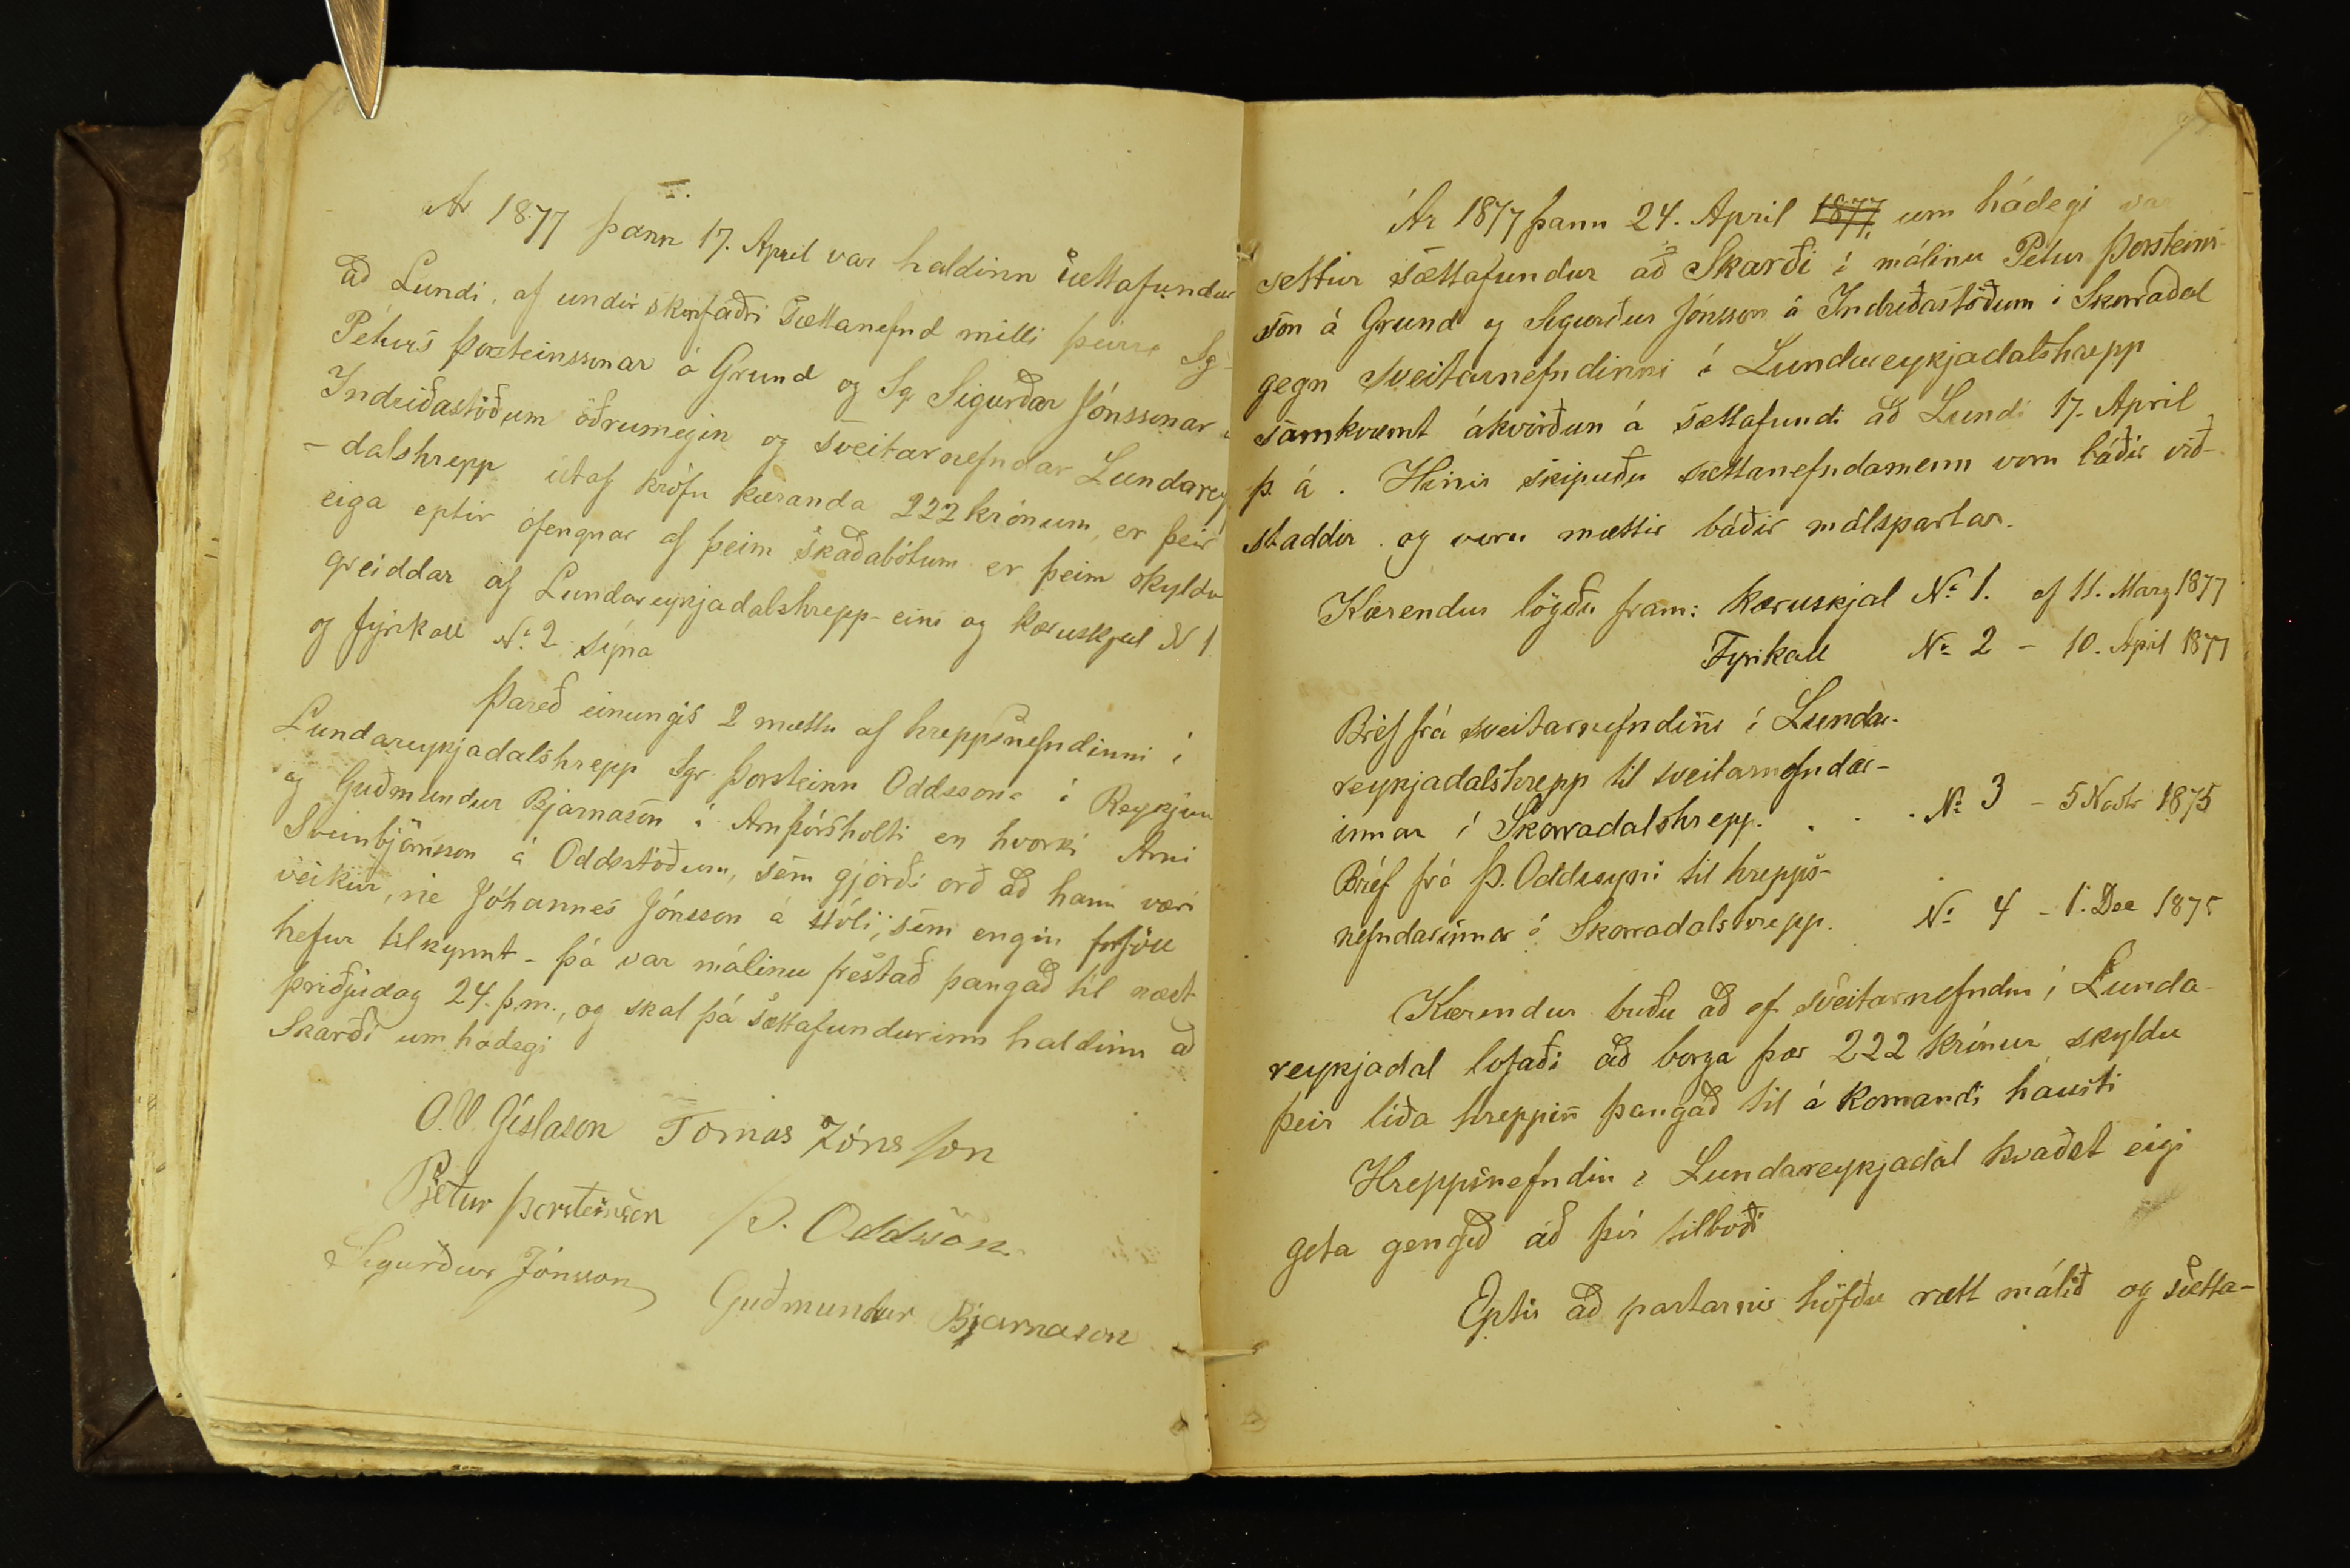 Ár 1877 þann 17. April var haldinn sættafundur
að Lundi, af undirskrifaðri Sættanefnd milli þeirra Sg
Péturs Þorsteinssonar á Grund og Sgr Sigurðar Jónssonar á
Indriðastöðum öðrumegin og sveitarnefndar Lundarey
- dalshrepp útaf kröfu kæranda 222 krónum, er þeir
eiga eptir ófengnar af þeim skaðabótum er þeim skyldu
greiddar af Lundareykjadalshrepp - eins og kæruskjal N 1
og fyrikall No. 2 sýna
Þareð einungis 2 mættu af hreppsnefndinni í
Lundareykjadalshrepp Sgr. Þorsteinn Oddsson á Reykjum
og Guðmundur Bjarnason á Arnþórsholti en hvorki Arni
Sveinbjörnsson á Oddsstöðum, sem gjörði orð að hann væri
veikur, nie Jóhannes Jónsson á Hóli, sem engin forföll
hefur tilkynnt - þá var málinu frestað þangað til næst
þriðjudag 24. þ.m., og skal þá sættafundurinn haldinn að
Skarði um hádegi
O. V. Gíslason Tomas Jónsson
Pjetur Þorsteinsson Þ. Oddsson
Sigurður Jónsson Guðmundur Bjarnason
Ár 1877 þann 24. April 1877 um hádegi var
settur sættafundur að Skarði í málinu Pétur Þorsteins-
son á Grund og Sigurður Jónsson á Indriðastöðum í Skorradal
gegn sveitarnefndinni í Lundareykjadalshrepp
samkvæmt ákvörðun á sættafundi að Lundi 17. April
þ. á. Hinir skipuðu sættanefndamenn voru báðir við-
staddir og voru mættir báðir málspartar.
Kærendur lögðu fram: kæruskjal No 1. af 11. Marz 1877
Fyrikall No 2 - 10. April 1877
Brèf frá sveitarnefndiñi í Lunda-
reykjadalshrepp til sveitarnefndar-
innar í Skorradalshrepp. . . . No 3 - 5 Novbr 1875
Brèf frá Þ. Oddssyni til hrepps-
nefndarinnar í Skorradalshrepp. No 4 - 1. Dec 1875
Kærendur buðu að ef sveitarnefndin í Lunda-
reykjadal lofaði að borga þær 222 krónur, skyldu
þeir líða hreppiñ þangað til á komandi hausti
Hreppsnefndin í Lundareykjadal kvaðst eigi
geta gengið að því tilboði
Eptir að partarnir höfðu rætt málið og sætta-